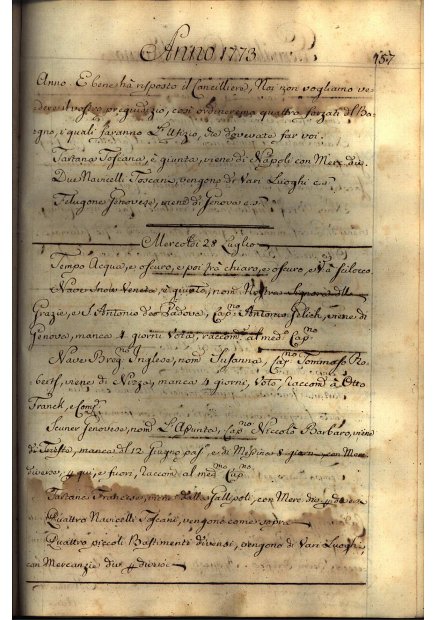 Anno 1773
157
Anno. E bene hà risposto il Cancilliere, Noi non vogliamo ve
dere il vostro pregiudizio, così ordineremo quattro forzati del Ba-
gno, i quali faranno l'Uffizio, che dovevate far voi.
Tartana Toscana, è giunta, viene di Napoli con Merc. div.
Due Navicelli Toscani, vengono di Vari Luoghi c. s.
Felugone Genovese, viene di Genova c. s.
Mercoldì 28 Luglio
Tempo Acqua, e oscuro, e poi trà chiaro, e oscuro, Scilocco
Nave Snow Veneta, è giunta, nom. Nostra Signora dlle
Grazie, e S. Antonio da Padova, Cap.no Antonio Gelich, viene di
Genova, manca 4 giorni Vota, raccom. al med.mo Cap.no
Nave Brig.no Inglese, nom. Susanna, Cap.no Tommaso Ro-
berts, viene di Nizza, manca 4 giorni, Voto, raccom. à Otto
Franck, e Comp.
Scuner Genovese, nom. S. Apunta, Cap.no Niccolò Barbaro, viene
di Trieste, manca dl 12 Giugno pas. e di Messina 8 giorni con Merc.
diverse, qui, e fuori, raccom. al med.mo Cap.no
Tartana Francese, viene dalla Gallipoli, con Merc. div.
Quattro Navicelli Toscani, vengono come sopra
Quattro piccoli Bastimenti diversi, vengono di Vari Luoghi
con Mercanzie div. p diversi